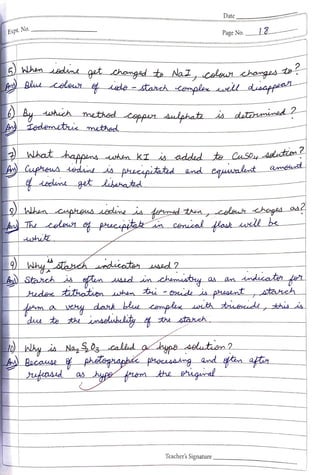 Date
Expt. No.
Page No. 18
5) When iodine get changed to NaI, colour changes to?
Ans) Blue colour of iodo-starch-complex will disappear
6) By which method copper sulphate is determined?
Ans) Iodometric method
7) What happens when KI is added to CuSO4 solution?
Ans) Cuprous iodine is precipitated and equivalent amount
of iodine get liberated
8) When cuprous iodine is formed then, colour chages as?
Ans) The colour of precipitate in conical flask will be
white
9) Why is starch indicator used?
Ans) Starch is often used in chemistry as an indicator for
redox titration when tri-oxide is present, starch
form a very dark blue complex with trioxide, this is
due to the insolubility of the starch
10) Why is Na2S2O3 called a hypo solution?
Ans) Because of photographic processing and often after
refceased as hypo from the original
Teacher's Signature